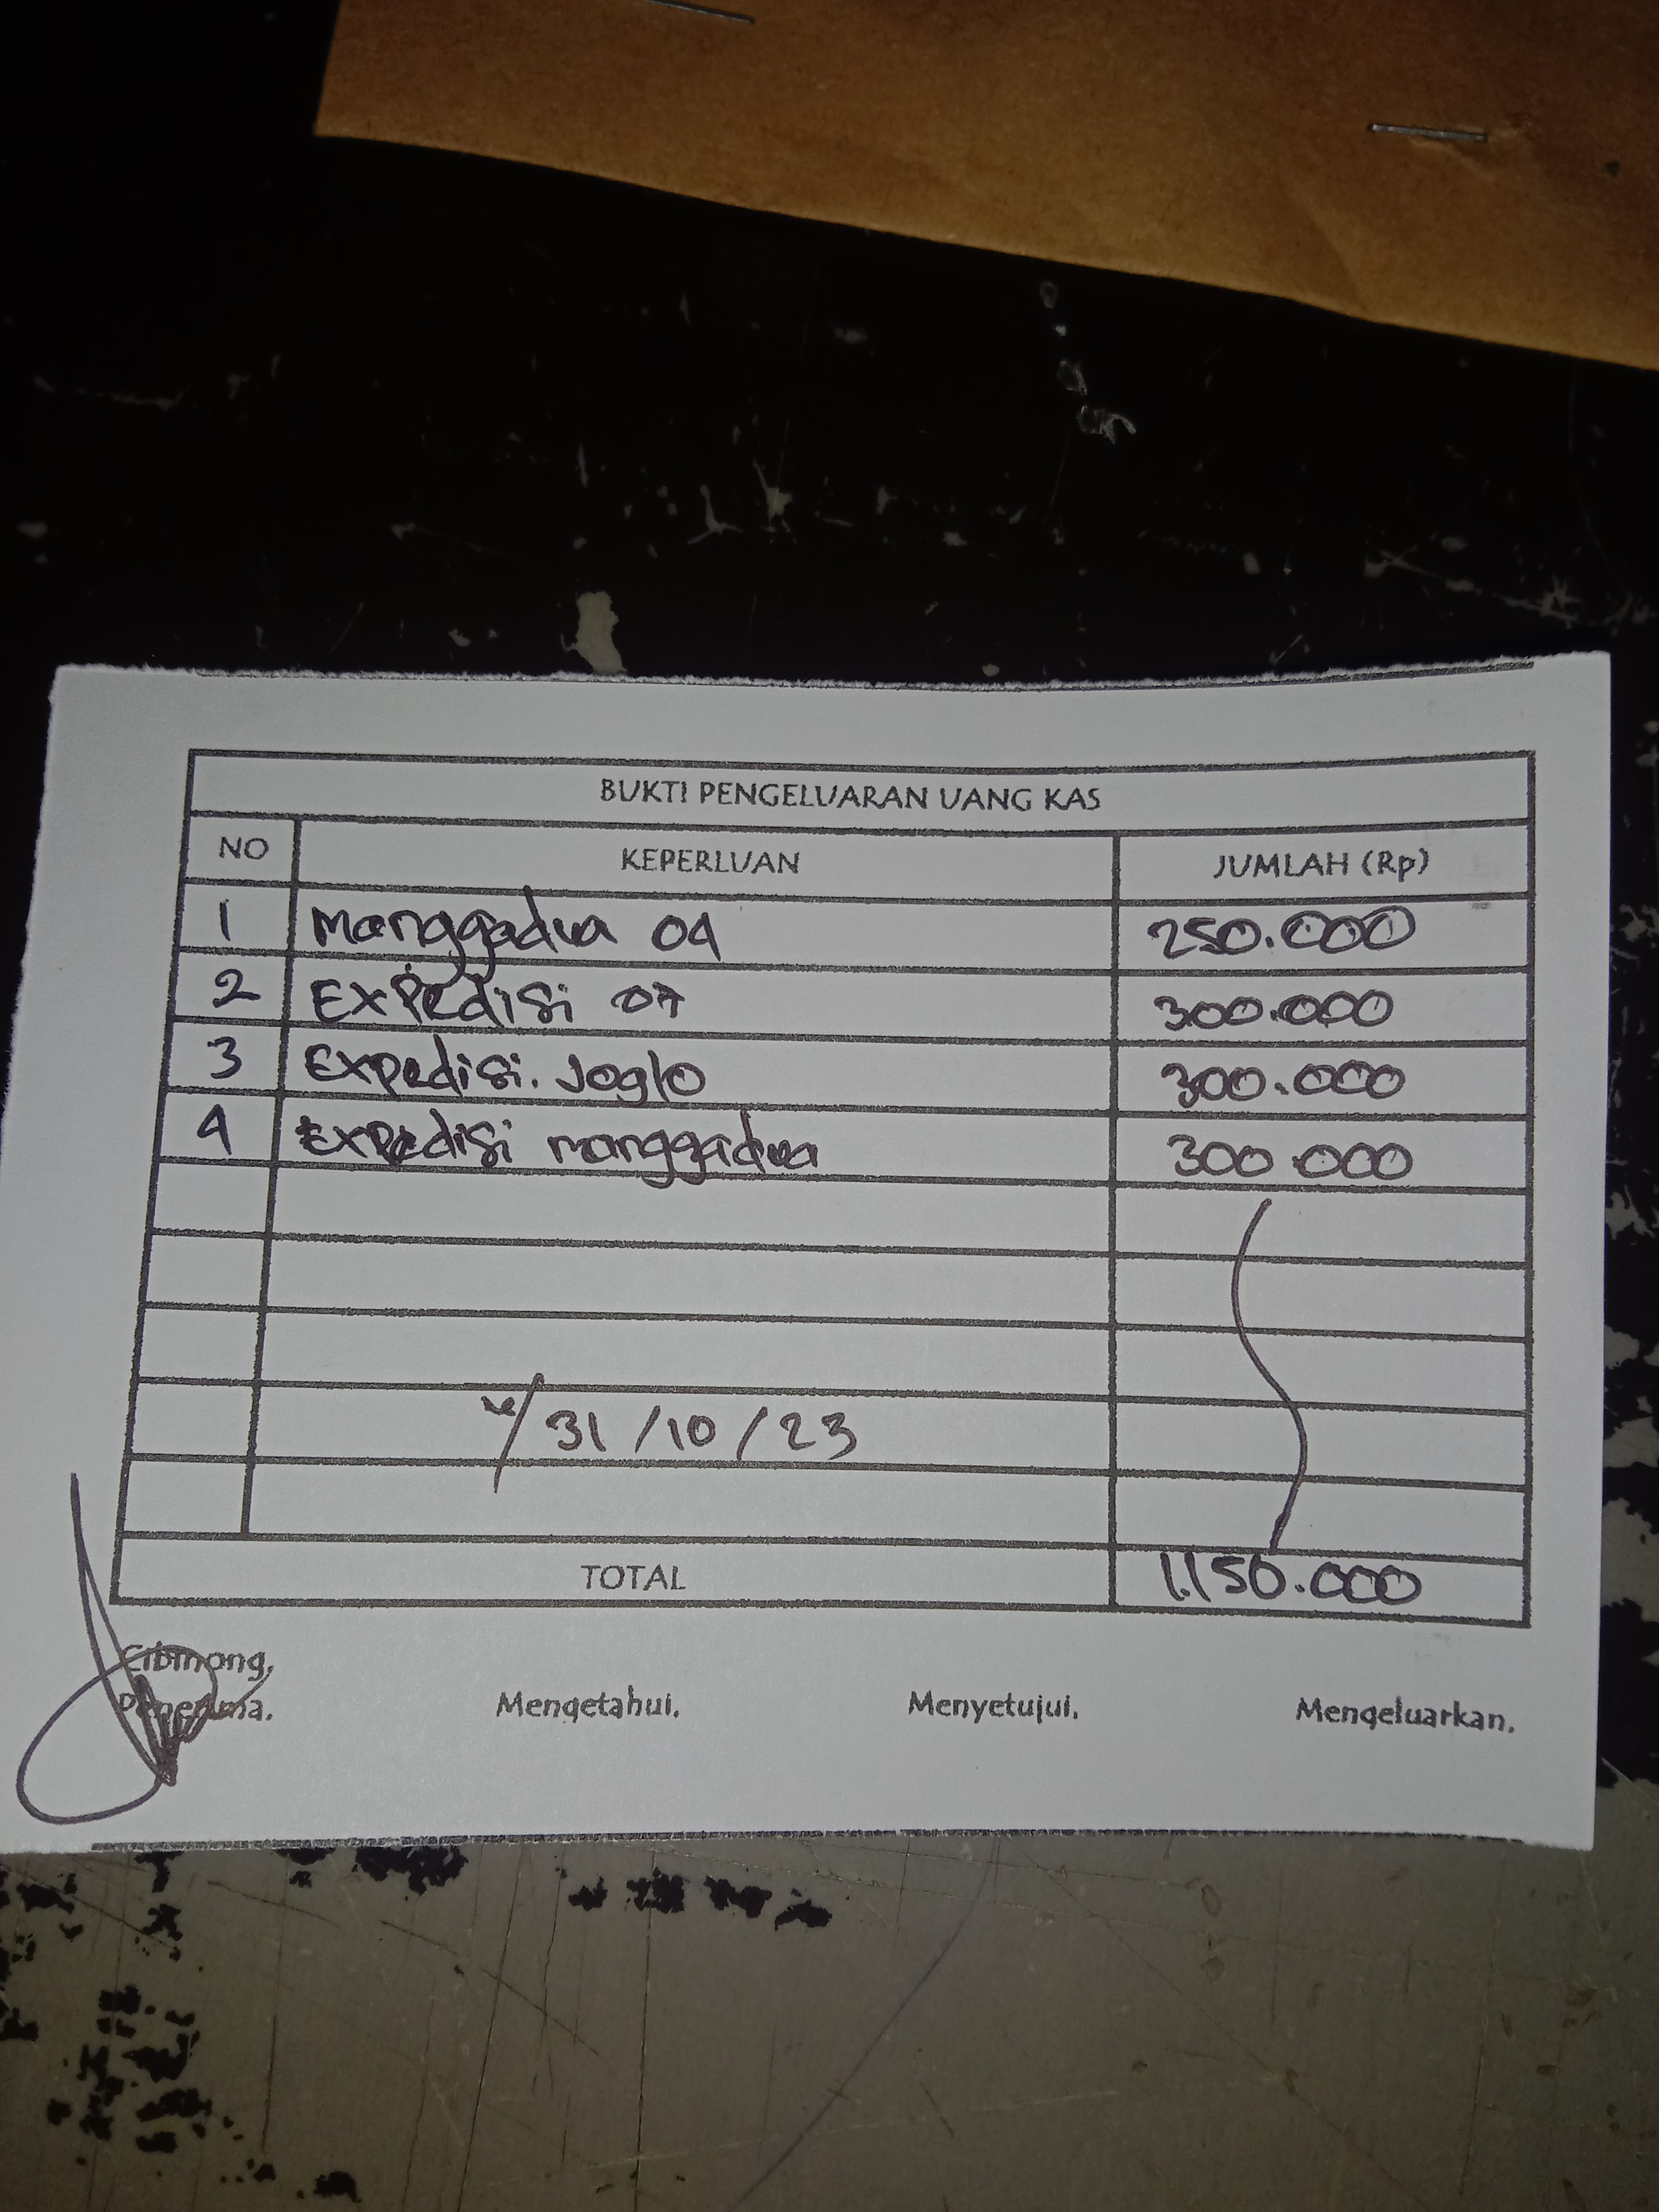 BUKTI PENGELUARAN UANG KAS
NO KEPERLUAN JUMLAH (Rp)
1 Manggadua 04 250.000
2 Expedisi 07 300.000
3 Expedisi. Joglo 300.000
4 Expedisi manggadua 300.000
31/10/23
TOTAL 1.150.000
Cibinong,
Penerima. Mengetahui. Menyetujui. Mengeluarkan.